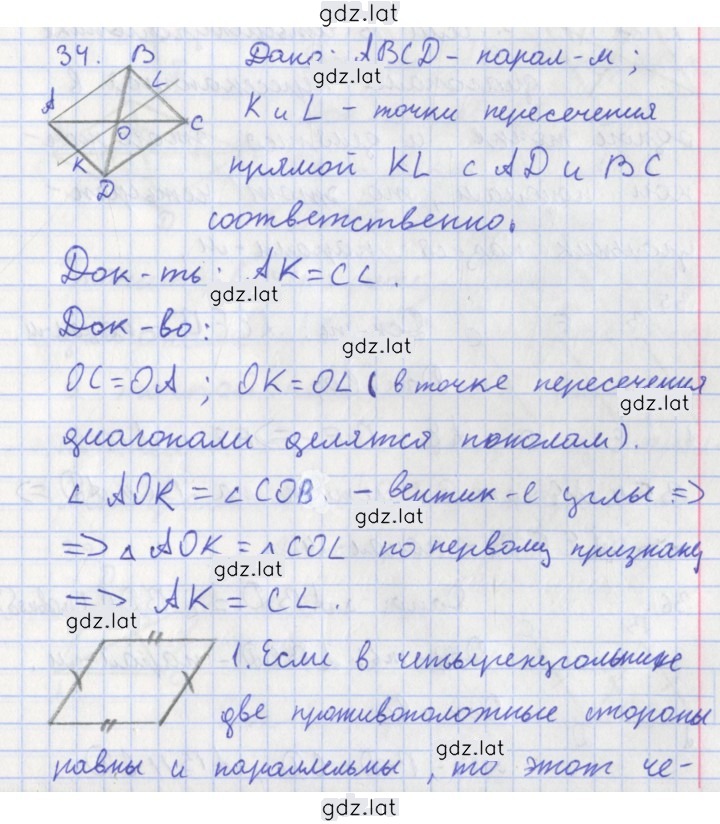 gdz.lat
34. Дано: ABCD - парал-м;
gdz.lat
B
L
A
O
C
K
D
K и L - точки пересечения
прямой KL с AD и BC
соответственно.
Док-ть: AK = CL.
gdz.lat
Док-во:
gdz.lat
OC = OA; OK = OL (в точке пересечения
gdz.lat
диагонали делятся пополам).
∠ AOK = ∠ COB - вертик-е углы =>
gdz.lat
=> △ AOK = △ COL по первому признаку
gdz.lat
=> AK = CL.
gdz.lat
1. Если в четырехугольнике
две противоположные стороны
gdz.lat
равны и параллельны, то этот че-
gdz.lat